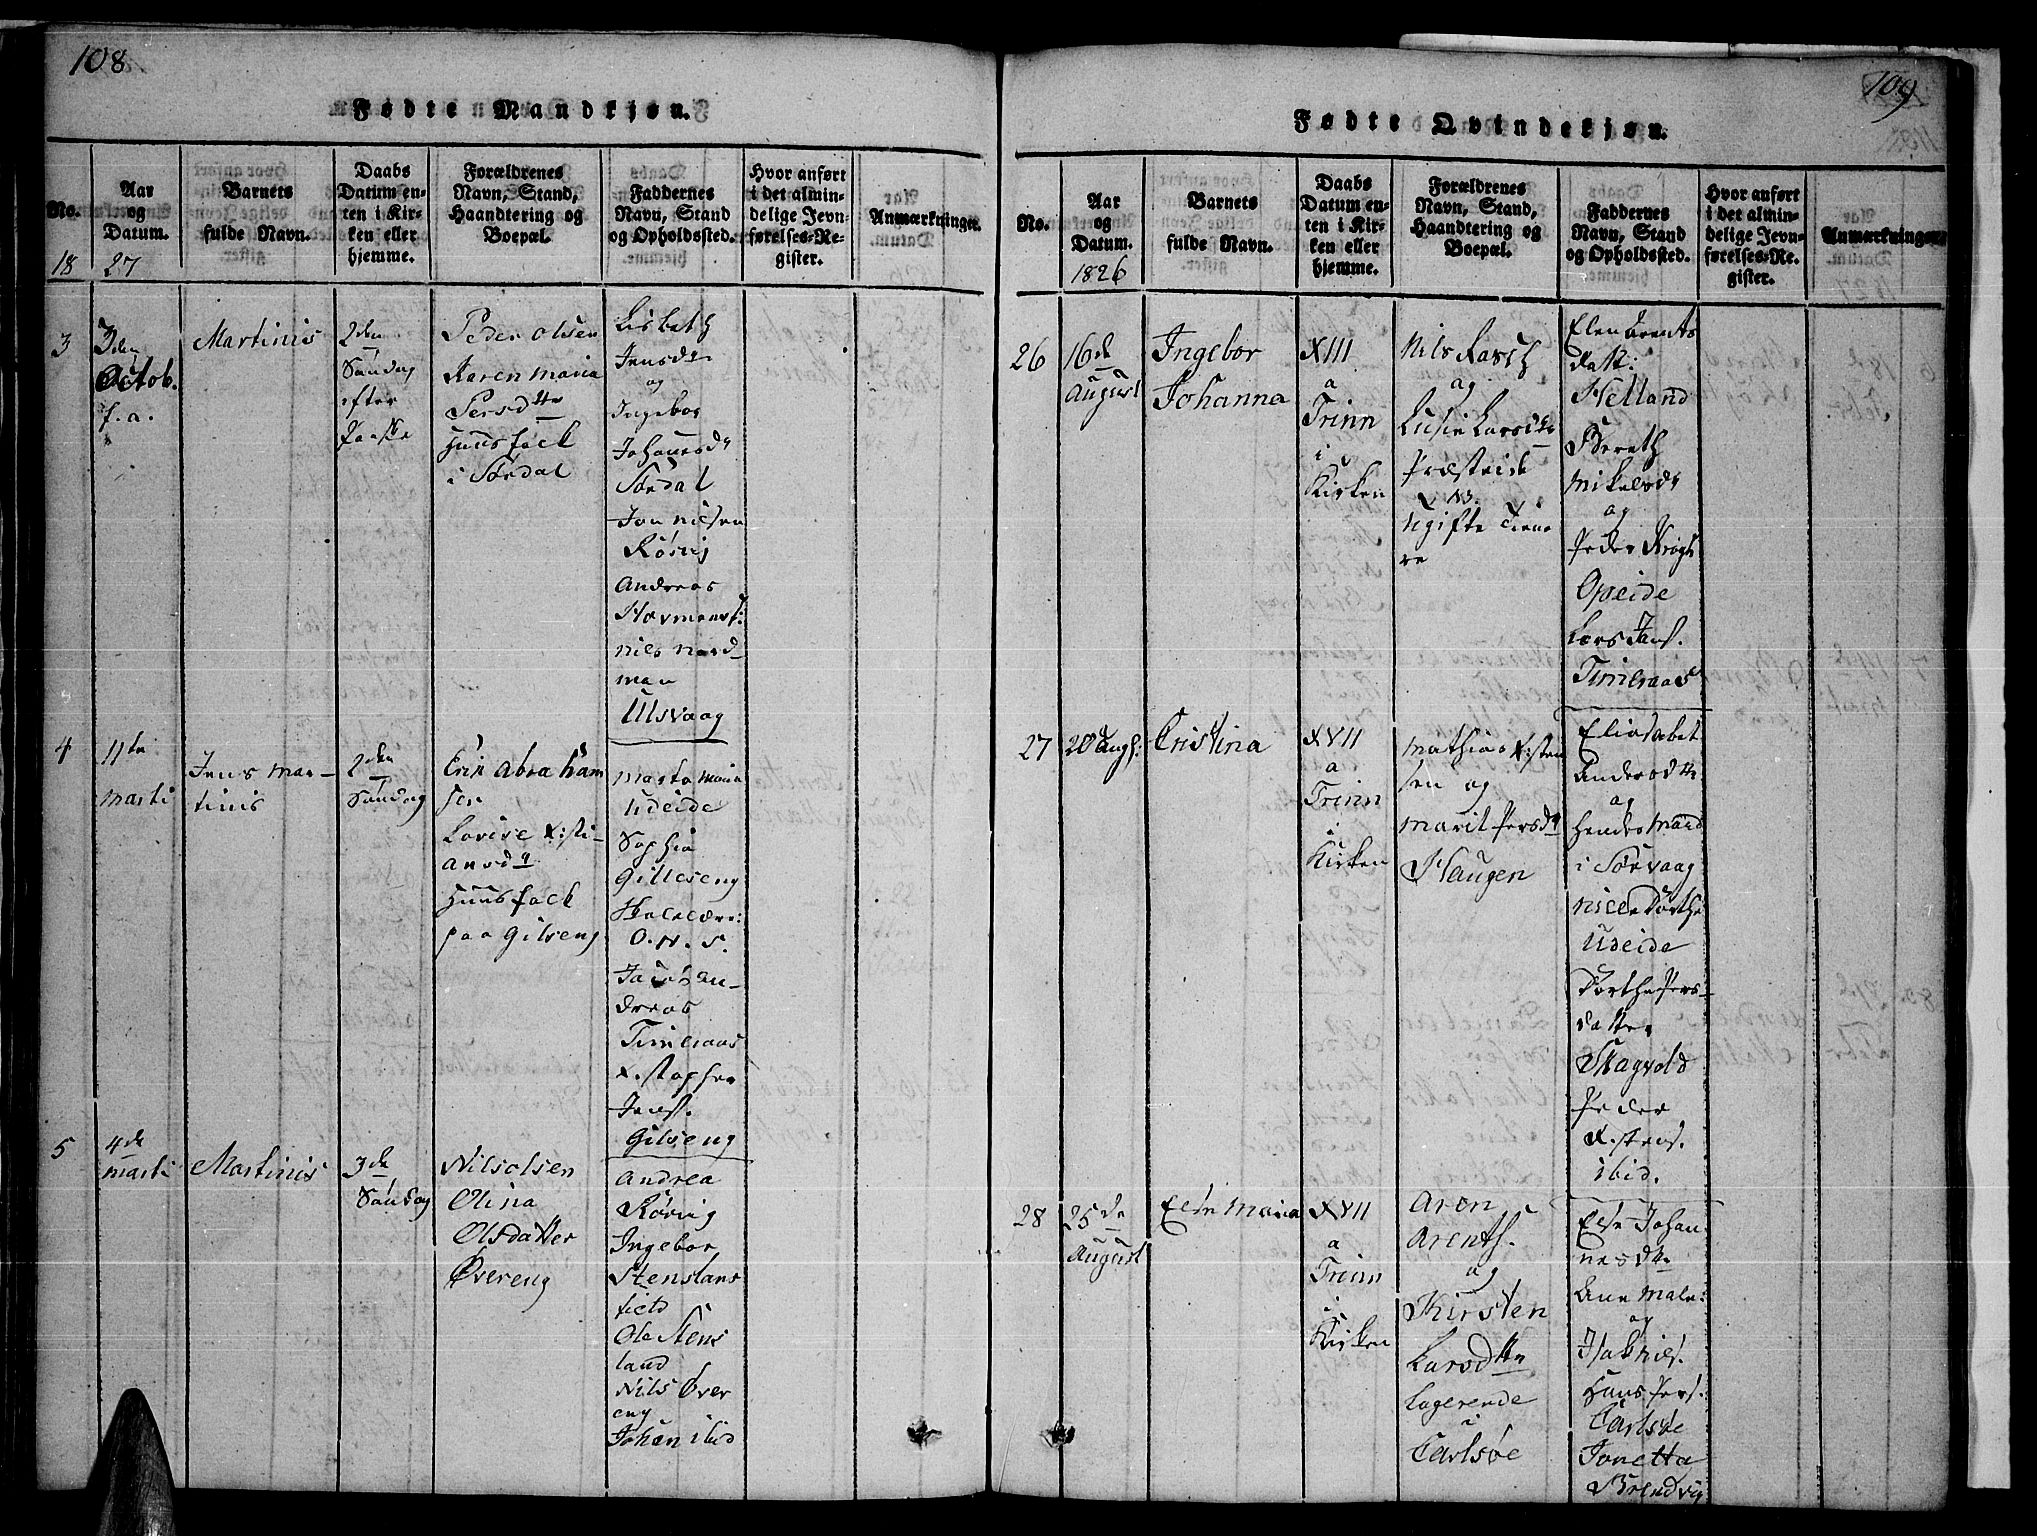 108
Fødte Mandkjøn.
No.
Aar
og
Datum.
Barnets
fulde Navn.
Daabs
Datum en-
ten i Kir-
ken eller
hjemme.
Forældrenes
Navn, Stand,
Haandtering og
Boepæl.
Faddernes
Navn, Stand
og Opholdssted.
Hvor anført
i det almin-
delige Jevn-
førelses-Re-
gister.
Anmærkninger.
18 27
3
3den
Octob.
f. a.
Martinis
2den
Søndag
efter
Paaske
Peder Olsen
Karen Maria
Persdtr
Huusfolk
i Sørdal
Lisbeth
Jensdr
og
Ingebor
Johanesdr
Sørdal
Jon Nilsen
Rørvig
Andreas
Hovmansf:
Niels Nord-
man
Ulsvaag
4
11te
Marti
Jens Mar-
tinis
2den
Søndag
Erik Abraham
sen
Lovise X:sti-
ansdr
Huusfolk
paa Gilseng
Marta Maria
Udeide
Sophia
Gilleseng
Skolelære:
O. N. S.
Jacob An-
dreas
Timeraas
X:stopher
Jensf.
Gilseng
5
4de
Marti
Martinis
3de
Søndag
Nils Olsen
Olina
Olsdatter
Øvereng
Andrea
Rørvig
Ingebor
Stenslans
field
Ole Stens
land
Nils Øver
eng
Johan ibid
109
Fødte Qvindekjøn.
No.
Aar
og
Datum.
1826
Barnets
fulde Navn.
Daabs
Datum en-
ten i Kir-
ken eller
hjemme.
Forældrenes
Navn, Stand,
Haandtering og
Boepæl.
Faddernes
Navn, Stand
og Opholdssted.
Hvor anført
i det almin-
delige Jevn-
førelses-Re-
gister.
Anmærkninger.
26
16de
August
Ingebor
Johanna
XIII
a
Trinn
i
Kirken
Nils Rasch
og
Lusie Larsdtr
Præsteide
NB.
Ugifte Tiene
re
Elen Arents
datt:
Helland
Bereth
Mikelsdr
og
Peder Krogh
Opeide
Lars Jansf.
Timeraas
27
20 Augs:
Cristina
XVII
a
Trinn
Kirken
Mathias X:sten
sen og
Marit Persdr
Haugen
Eliasabet
Andersdtr
og
Hendes Mand
i Sørvaag
Nille Dorthe
Udeide
Dorthe Pers-
datter
Skagvold
Peder
X:stens.
ibid.
28
25de
August
Else Maria
XVII
a
Trinn
i
Kirken
Aron
Arentsf.
og
Kirsten
Larsdtr
Logerende
i
Carlsøe
Else Johan-
nesdtr
Ane Male:
og
Hans Pers.
Carlsøe
Jonetta
Brendvig